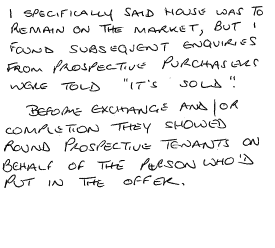 I SPECIFICALLY SAID HOUSE WAS TO
REMAIN ON THE MARKET, BUT I
FOUND SUBSEQUENT ENQUIRIES
FROM PROSPECTIVE PURCHASERS
WERE TOLD "IT'S SOLD".
BEFORE EXCHANGE AND/OR
COMPLETION THEY SHOWED
ROUND PROSPECTIVE TENANTS ON
BEHALF OF THE PERSON WHO'D
PUT IN THE OFFER.